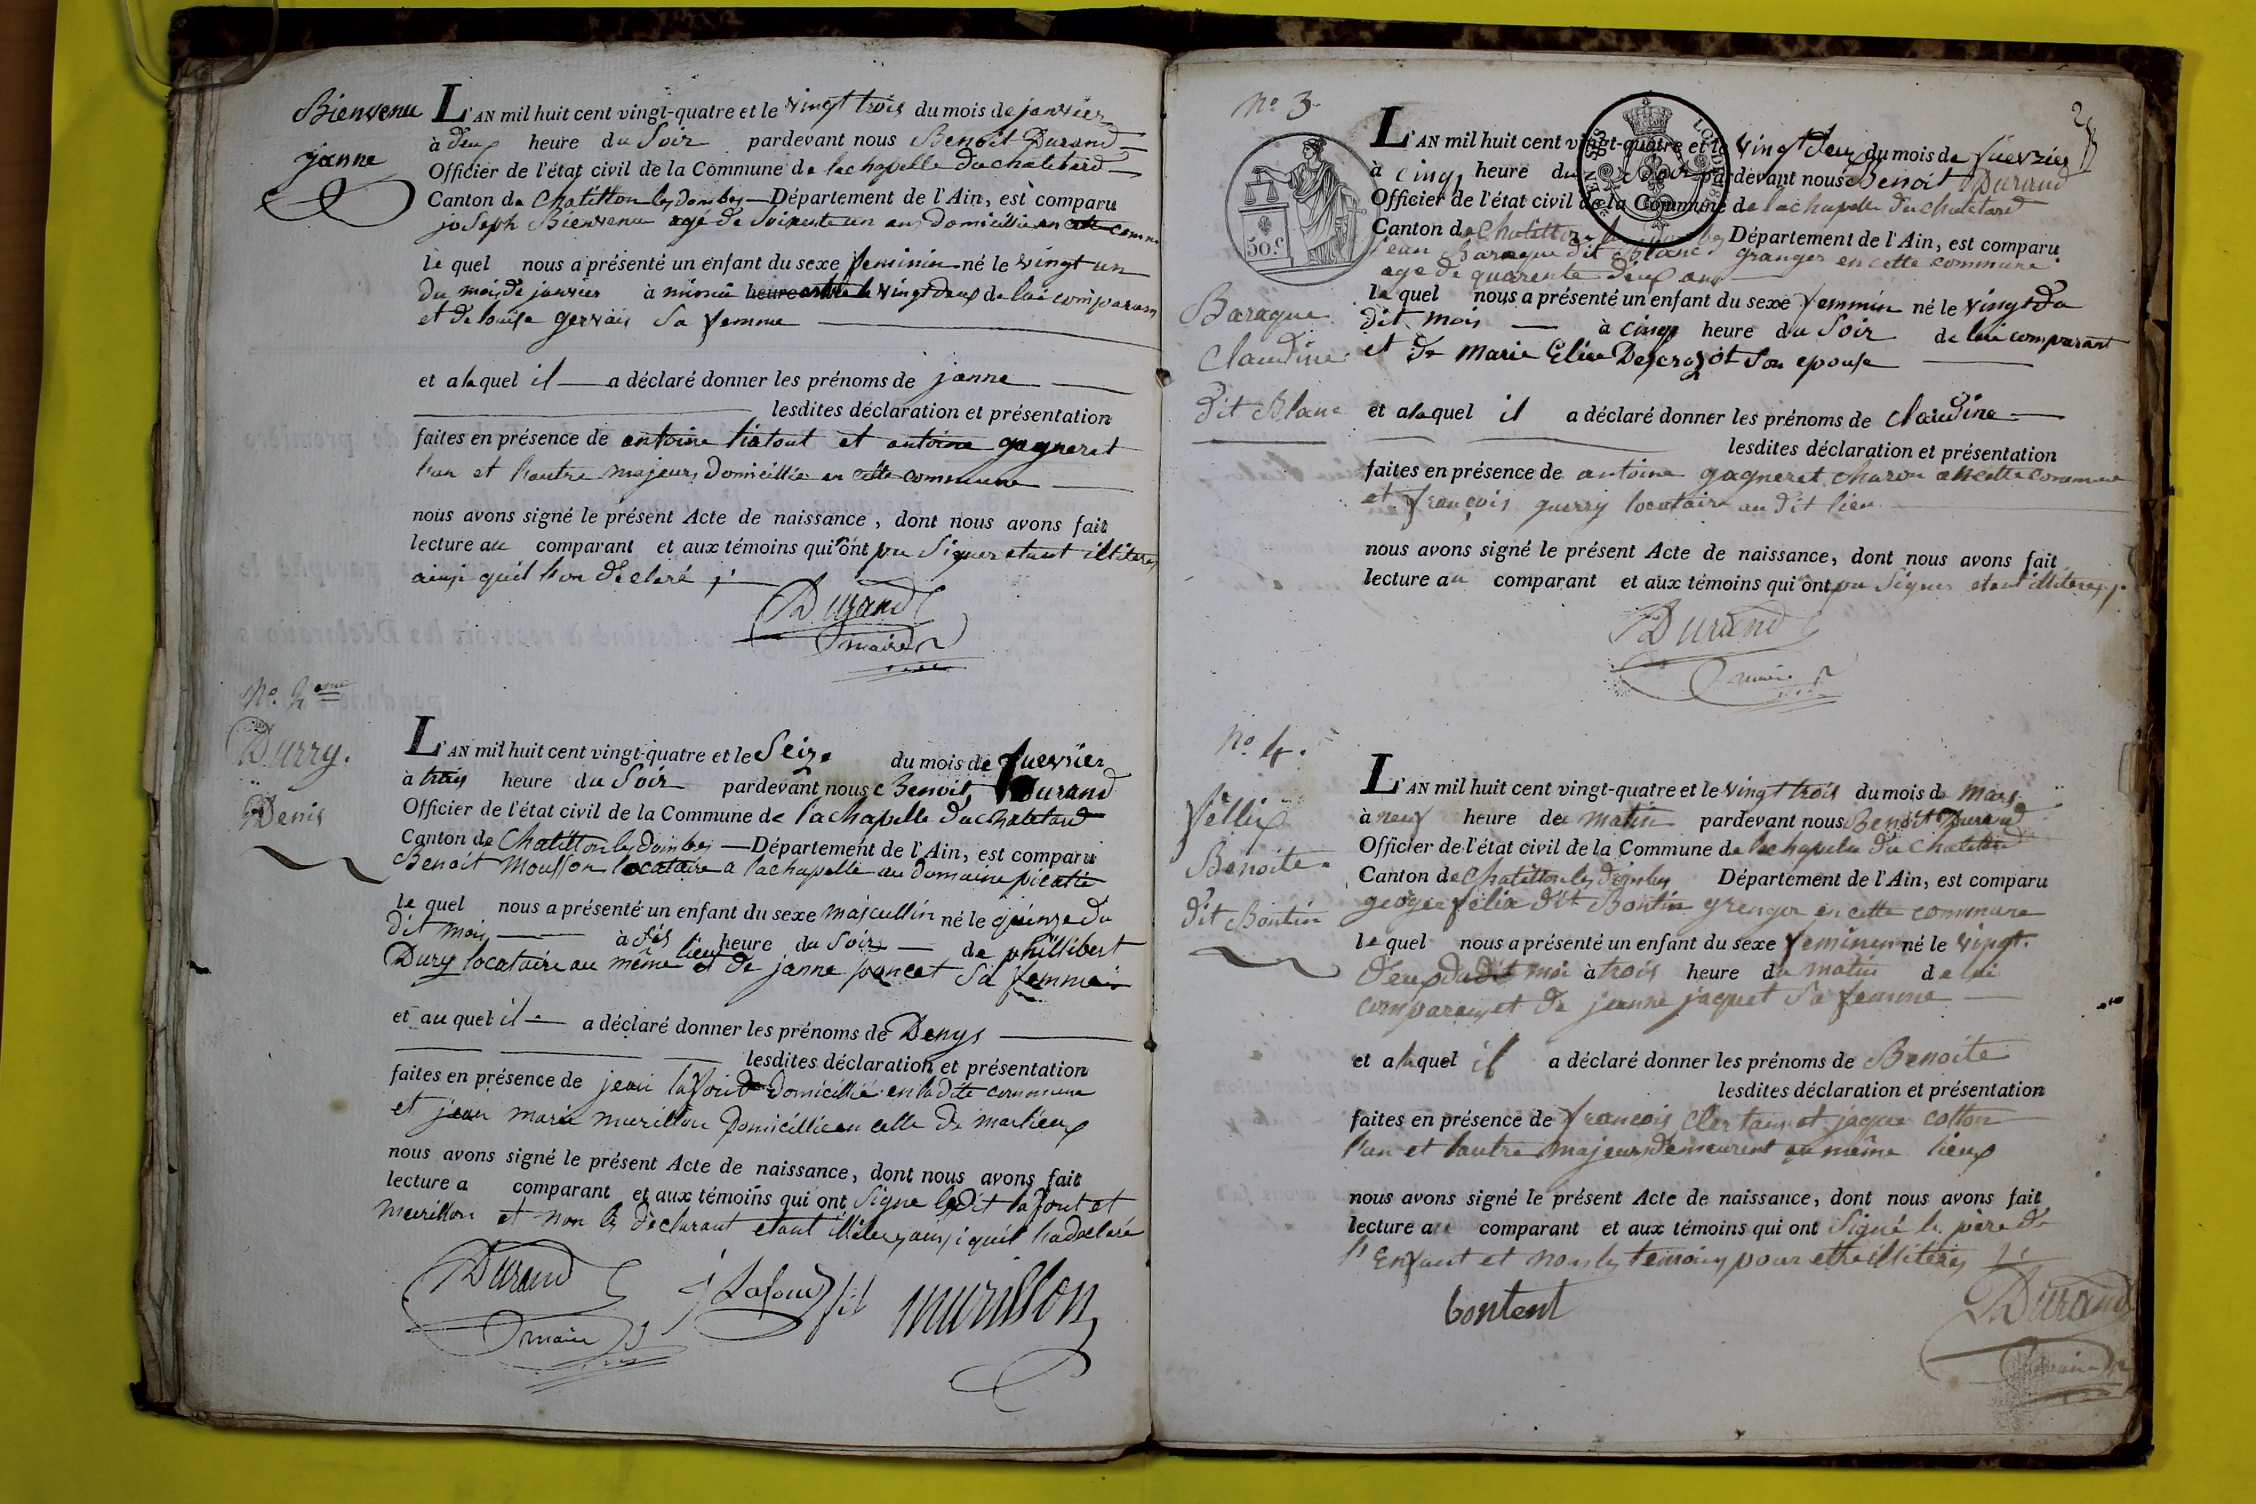 Bienvenu
janne
L'AN mil huit cent vingt-quatre et le vingt trois du mois de janvier
à deux heure du Soir pardevant nous Benoit Durand
Officier de l'état civil de la Commune de lachapelle duchatelard
Canton de Chatillon les dombes Département de l'Ain, est comparu
joseph Bienvenu agé de Soixente un ans domicillié en
le quel nous a présenté un enfant du sexe feminin né le vingt un
du mois de janvier à minuit heure entre le vingt deux de lui comparant
et de louise gervais Sa femme
et alaquel il a déclaré donner les prénoms de janne
lesdites déclaration et présentation
faites en présence de antoine liatout et antoine gagneret
lun et lautre majeurs domicillié en cette commune
nous avons signé le présent Acte de naissance, dont nous avons fait
lecture au comparant et aux témoins qui n'ont pu Signer etant illiteres
ainsi quil lon declaré
Durand
maire
No. 2eme
Durry.
Denis
L'AN mil huit cent vingt-quatre et le Seize du mois de fuevrier
à trois heure du Soir pardevant nous Benoit Durand
Officier de l'état civil de la Commune de lachapelle du chatelard
Canton de Chatillon les dombes Département de l'Ain, est comparu
Benoit Mousson locataire a lachapelle au domaine picatié
le quel nous a présenté un enfant du sexe mascullin né le quinze du
dit mois à sis heure du Soir de phillibert
Dury locataire au même lieu et de janne poncet Sa femme
et au quel il a déclaré donner les prénoms de Denys
lesdites déclaration et présentation
faites en présence de jean lafont domicillié en ladite commune
et jean marie murillon domicillié en celle de marlieux
nous avons signé le présent Acte de naissance, dont nous avons fait
lecture a comparant et aux témoins qui ont Signe ledit lafont et
murillon et non le declarant etant illiteres ainsi quil la declaré
Durand
maire
J Lafond fils
murillon
No 3.
2
50 c.
Baraque
Claudine
dit Blanc
L'AN mil huit cent vingt-quatre et le vingt deux du mois de fuevrier
à cinq heure du Soir pardevant nous Benoit Durand
Officier de l'état civil de la Commune de lachapelle du chatelard
Canton de Chatillon les dombes Département de l'Ain, est comparu
jean Baraque dit Blanc granger en cette commune
age de quarente deux ans
la quel nous a présenté un enfant du sexe femmin né le vingt du
dit mois à cinq heure du Soir de lui comparant
et de Marie Elise Descrozot Son epouse
et alaquel il a déclaré donner les prénoms de claudine
lesdites déclaration et présentation
faites en présence de antoine gagneret charon en cette commune
et françois guerry locataire au dit lieu
nous avons signé le présent Acte de naissance, dont nous avons fait
lecture au comparant et aux témoins qui n'ont pu Signer etant illiteres
Durand
maire
No. 4.
féllix
Benoite.
dit Bontin
L'AN mil huit cent vingt-quatre et le vingt trois du mois de Mars
à neuf heure de matin pardevant nous Benoit Durand
Officier de l'état civil de la Commune de lachapelle du Chatelard
Canton de Chatillon les dombes Département de l'Ain, est comparu
george félix dit Bontin grenger en cette commune
le quel nous a présenté un enfant du sexe feminin né le vingt.
deux dudit moi à trois heure du matin de lui
comparant et de jeanne jaquet Sa femme
et alaquel il a déclaré donner les prénoms de Benoite
lesdites déclaration et présentation
faites en présence de françois Clertain et jaque cotton
l'un et lautre majeurs demeurent au même lieux
nous avons signé le présent Acte de naissance, dont nous avons fait
lecture au comparant et aux témoins qui ont Signé le père de
l'Enfant et non les temoins pour etre illitéres
bontent
Durand
maire